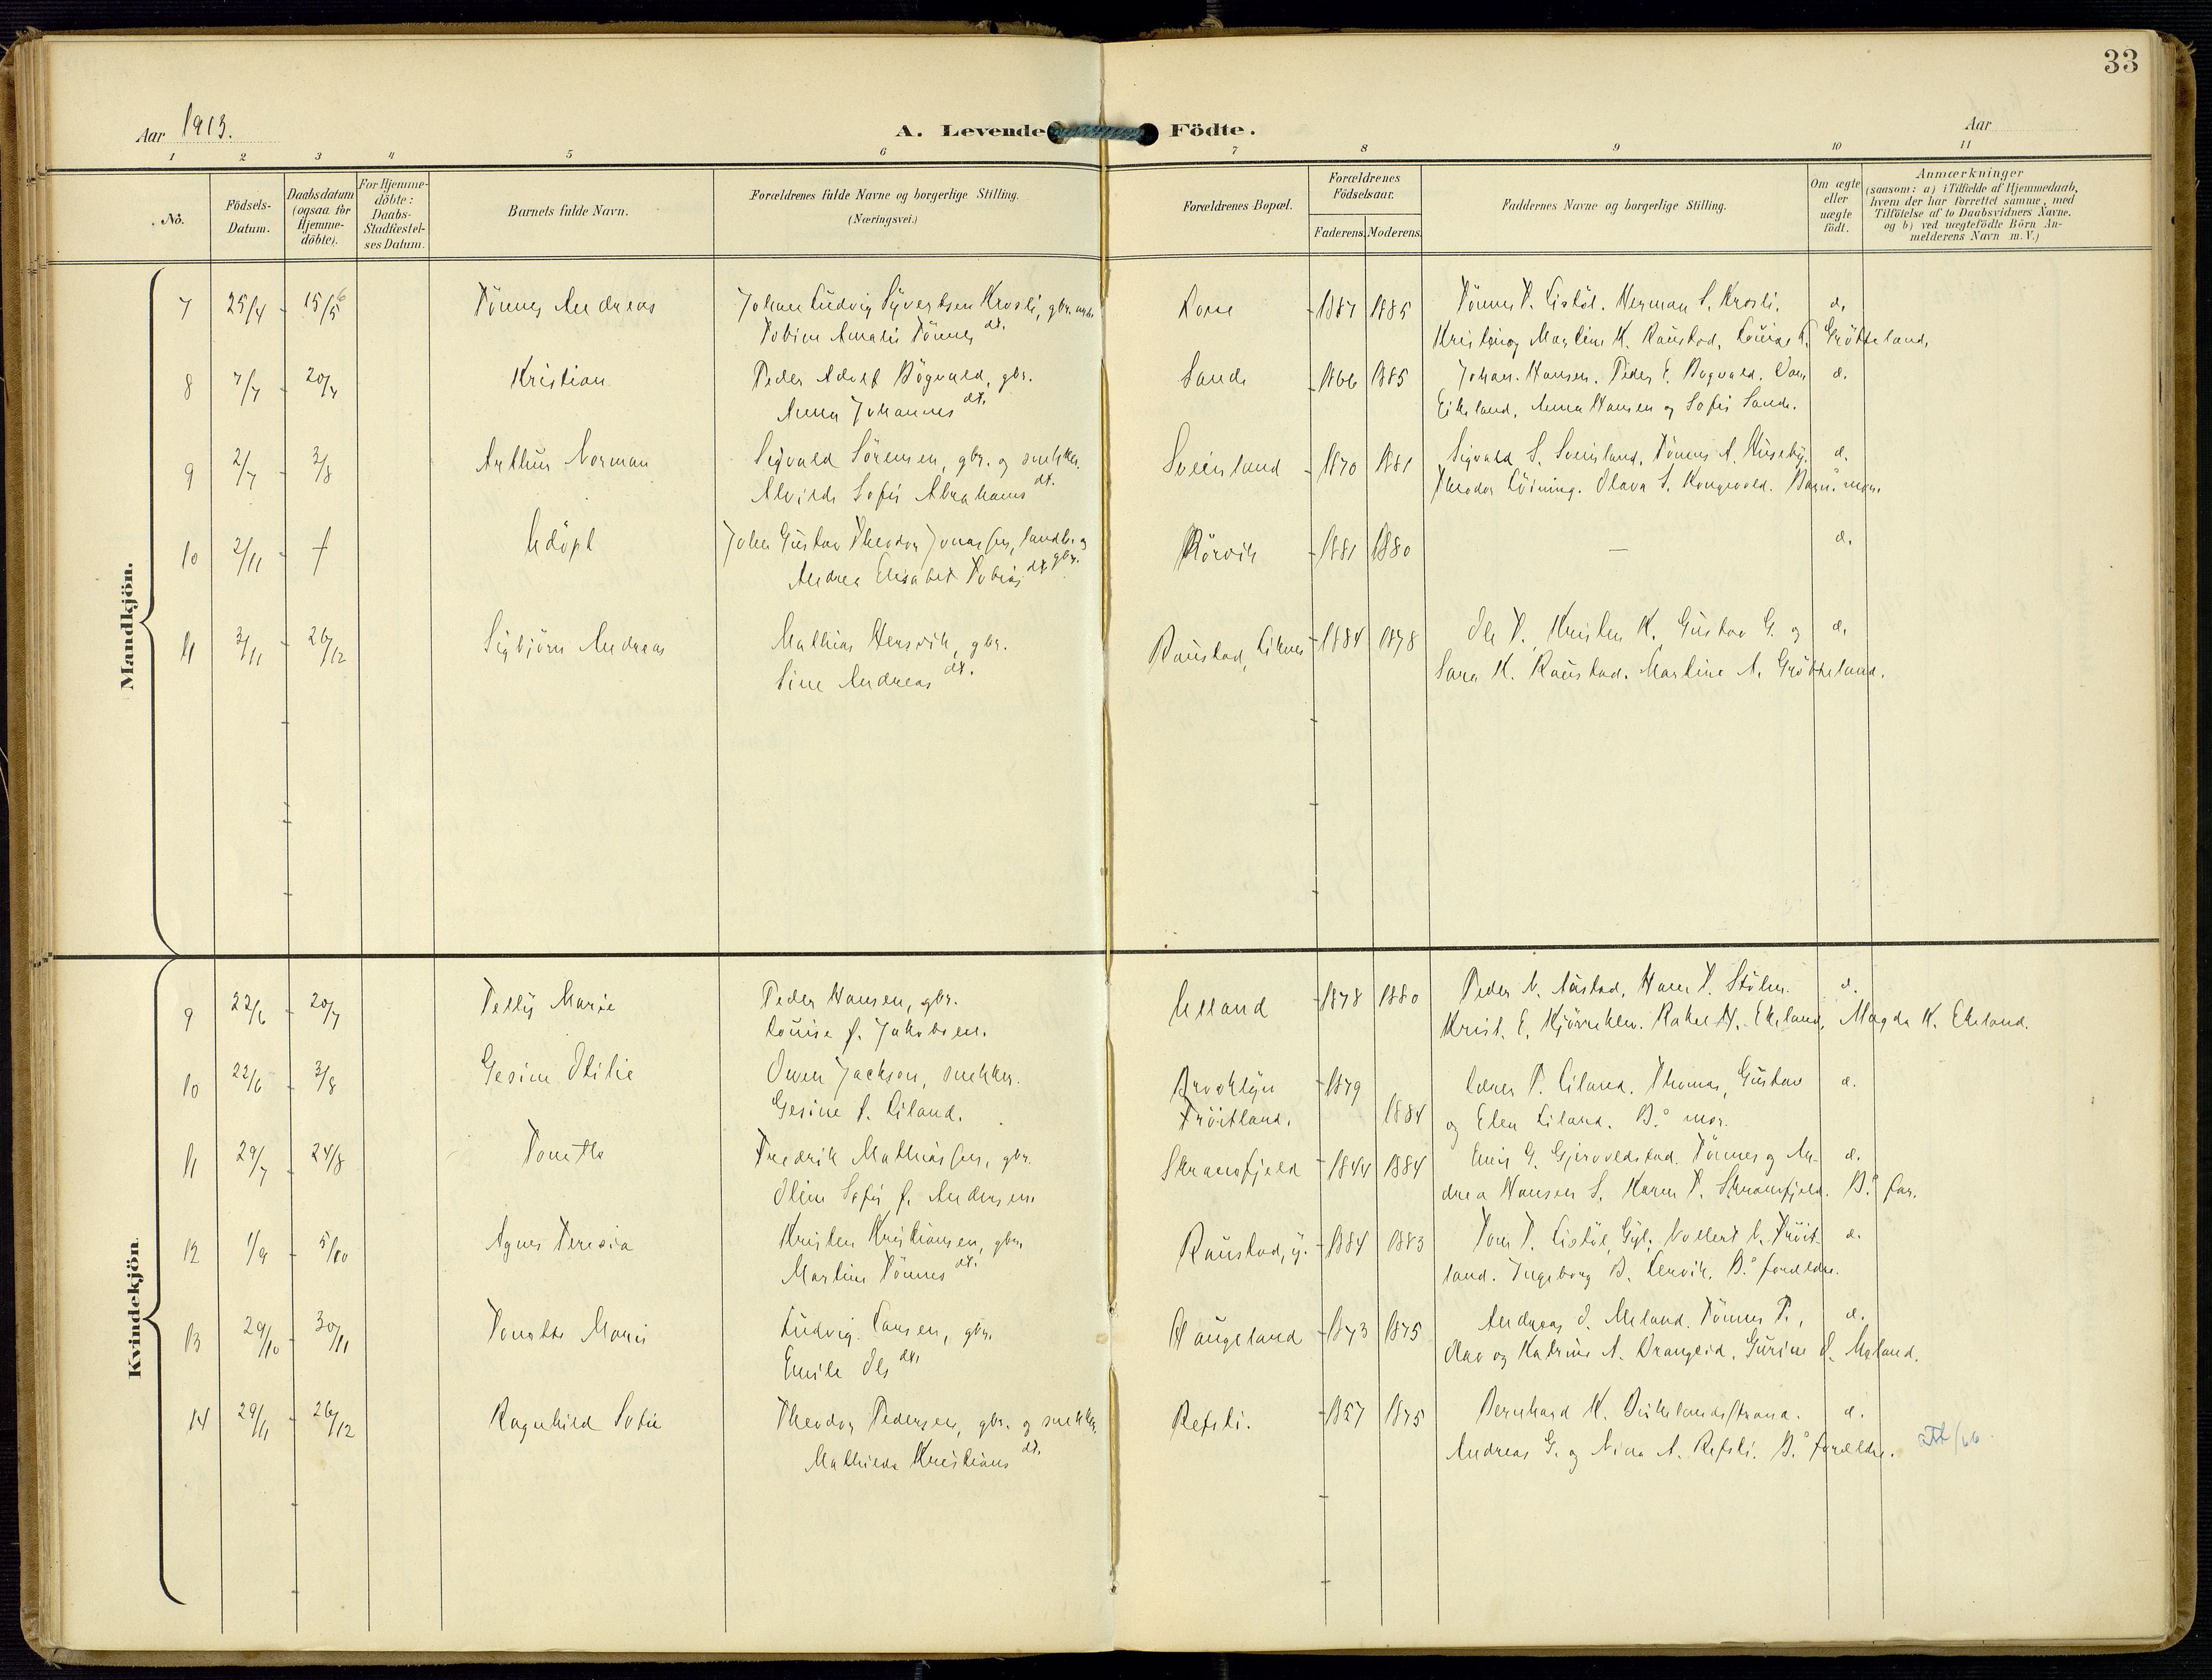 33
Aar 1913.
A. Levende Födte.
Aar
1 2 3 4 5 6 7 8 9 10 11
No.
Födsels-Datum.
Daabsdatum (ogsaa for Hjemme-döbte).
For Hjemme-döbte: Daabs-Stadfæstel-ses Datum.
Barnets fulde Navn.
Forældrenes fulde Navne og borgerlige Stilling.
(Næringsvei.)
Forældrenes Bopæl.
Forældrenes Födselsaar.
Faderens. Moderens.
Faddernes Navne og borgerlige Stilling.
Om ægte eller uægte födt.
Anmærkninger
(saasom: a) i Tilfælde af Hjemmedaab,
hvem der har forrettet samme, med
Tilföielse af to Daabsvidners Navne.
og b) ved uægtefödte Börn An-
melderens Navn m.V.)
Mandkjön.
7 25/4 15/6 Tönnes Andreas Johan Ludvig Syvertsen Krosli, gbr. 1887 1885 Tönnes T. Listöl. Herman S. Krosli. æ.
Tobine Amalie Tönnes dt. Martine K. Raustad, Louise Grötteland.
8 7/7 20/7 Kristian Peder Adolf Bögvald, gbr. Sande 1866 1885 Johan Hansen. Peder Bögvald. æ.
Anna Johannes dt. Eikeland, Anna Hansen og Sofie Sande.
9 2/7 3/8 Arthur Norman Sigvald Sörensen, gbr. og snekker. Sveinsland 1870 1881 Sigvald S. Sveinsland, Tönnes A. Huseby. æ.
Alvilde Sofie Abrahams dt. Theodor Olava S. Kongevold. Barn. mor.
10 2/11 † Udöpt John Gustav Theodor Jonassen, landh. og gbr. Rörvik 1881 1880 — æ.
Andrea Elisabet Tobias dt.
11 3/11 26/12 Sigbjörn Andreas Mathias Hersvik, gbr. Raustad, 1884 1878 Ole T. Kristen K. Gustav G. og æ.
Sine Andreas dt. Sara K. Raustad. Martine A. Grötteland.
Kvindekjön.
9 22/6 20/7 Telly Marie Peder Hansen, gbr. Ulland 1878 1880 Peder N. Aastad, Hans T. æ.
Louise f. Jakobsen. Krist. E. Rakel Ekeland, Magda K. Ekeland.
10 22/6 3/8 Gesine Otilie Owen Jackson, snekker. Brooklyn 1879 T. Liland. Thomas, Gustav æ.
Gesine f. Liland. Tröitland. 1884 og Elen Liland. B.s mor.
11 29/7 24/8 Tonette Fredrik Mathiassen, gbr. Skransfjeld 1844 1884 Emil G. Gjervoldstad. Tönnes og An- æ.
Oline Sofie f. Andersen. drea Hansen S. Karen T. Skransfjeld. B.s far.
12 1/9 5/10 Agnes Teresia Kristen Kristiansen, gbr. Raustad, y. 1884 1883 Tom T. Listöl, Gyl. Vollert N. Tröit- æ.
Martine Tönnes dt. land. Ingeborg B. Lervik. B.s forældre.
13 29/10 30/11 Tonette Marie Ludvig Larsen, gbr. Haugeland 1873 1875 Andreas O. Meland. Tönnes P., æ.
Emile Ols dt. Olav og Katrine A. Drangeid. Gurine O. Meland.
14 29/11 26/12 Ragnhild Sofie Theodor Pedersen, gbr. og snekker. Refsli. 1857 1875 Bernhard K. æ.
Mathilde Kristians dt. Andreas G. og Nina A. Refsli. B.s forældre.